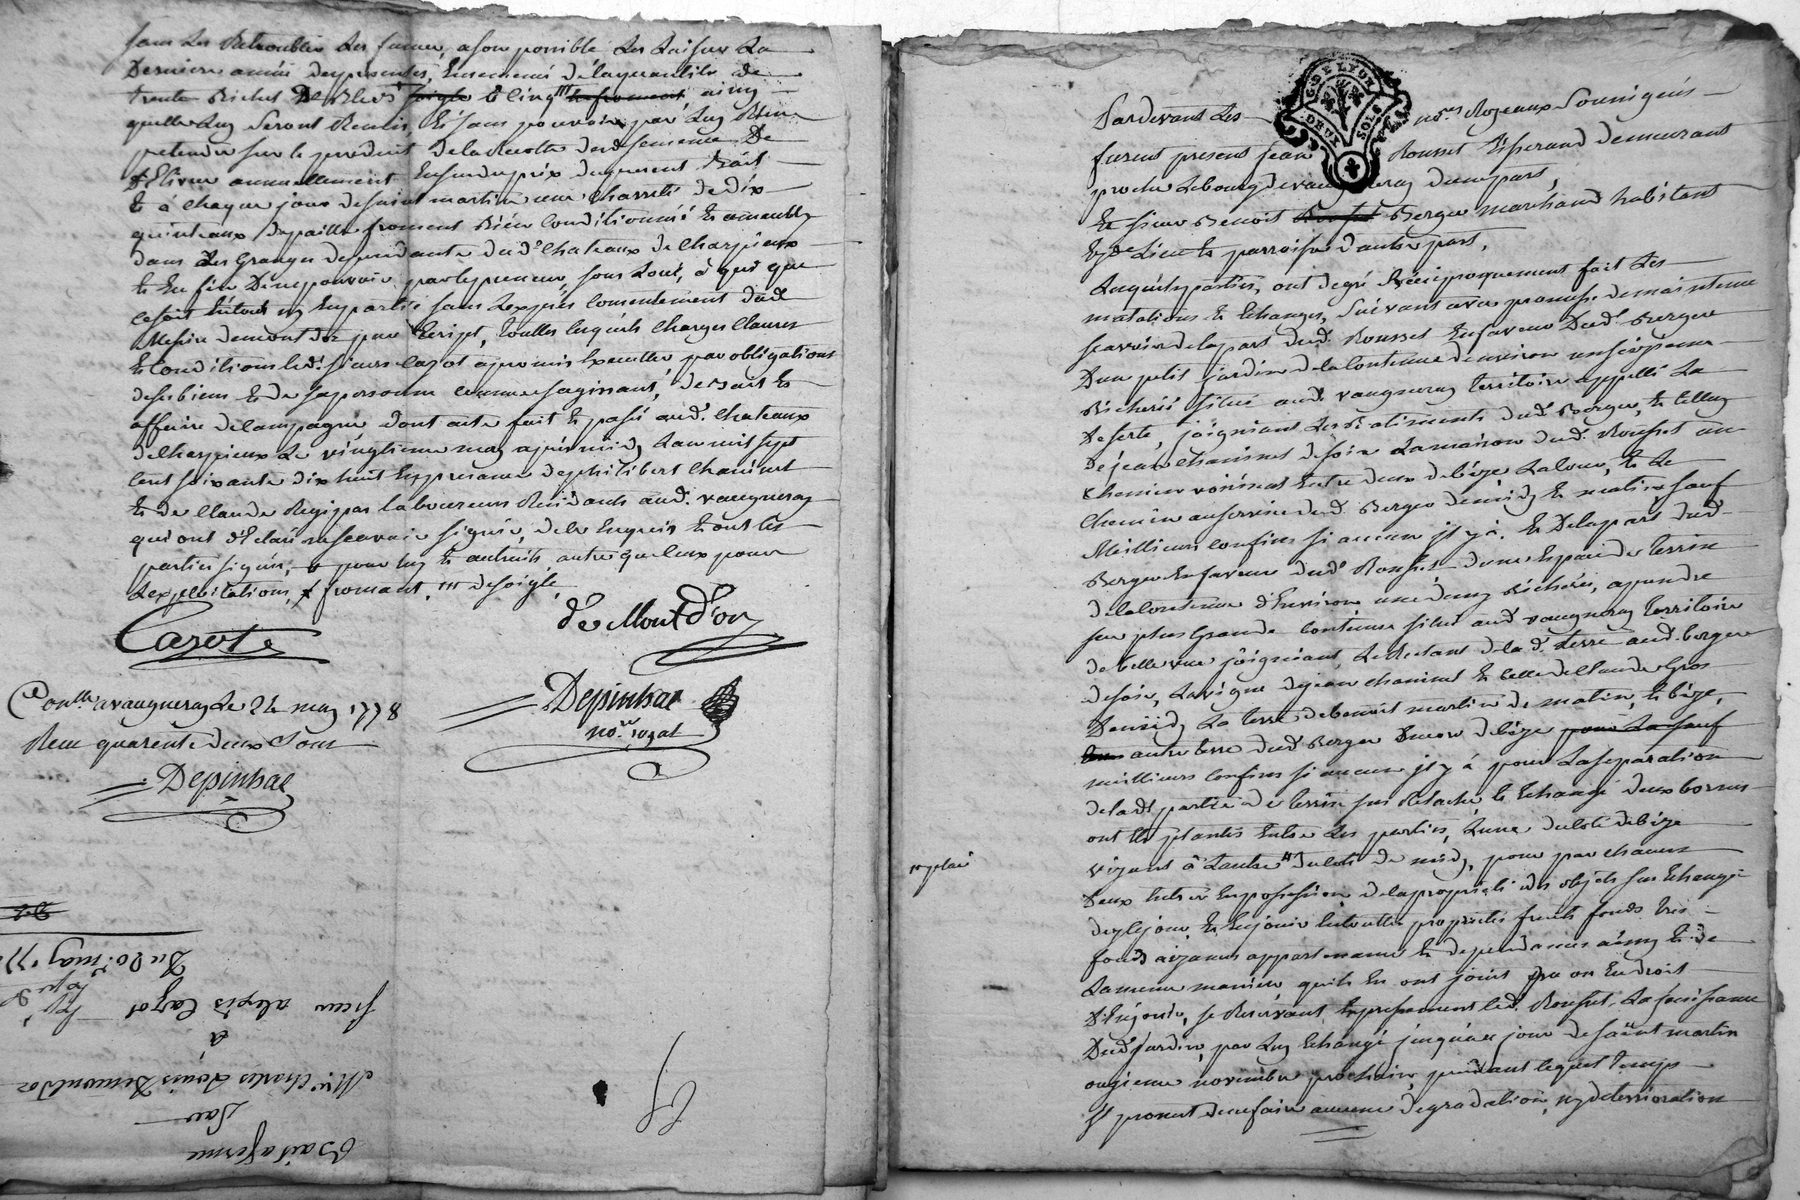 sans les détroubler les fumer, a son possible les laisser la
Derniere année desprésentes, Ensemencé délaquantité de
trente Bichets De Bled soigle et cinq froment ainsy
quelles luy seront Remis, Et sans pouvoir par luy Rien
pretendre sur le produit delaRecolte desd semence De
Délivrer annuellement Ensusduprix duprésent Bail
Et à chaque jour desaint martin une charretée de dix
quinteaux depaille froment Bien Conditionnée Et amenée
dans les Granges dependante dudt chateaux de Charpieux
Et Enfin Denepouvoir parlepreneur, sous Loüer, à qui que
cesoit Entout ny Enpartie sans Lexprès Consentement dud
Messire demont dor par Ecript, toutes lesquels charges Clauses
Et Conditions led. sieur Cazot apromis Executter par obligations
desesbiens Et de sapersonne comme sagissant, de Bail Et
affaire delampagne Dont acte fait Et passé aud. chateaux
deCharpieux Le vingtieme may aprèsmidy Lan mil sept
Cent soixante dix huit Enpresence dephilibert Chaninet
Et de Claude Regipas laboureurs Residants aud. vaugneray
qui ont déclaré nesçavoir signer, de ce Enquis Et ont les
parties signés, pour luy Et autruits, autre que Ceux pour
Lexploitations, froment, desoigle,
Cazot
de Mont d'or
Depinhac
nore royal
Conllé avaugneray Le 24 may 1778
Reçu quarente deux Sous
Depinhac
Du 20e may 177
sieur alexis Cazot
à
Mre Charles Louis Demontdor
Par
Bail aferme
G. DE LYON
DEUX SOLS
Pardevant Les nores Royeaux Soussignés
furent present Jean Rousset Tisserand demeurant
proche Lebourg devaugneray dunepart,
Et sieur Benoit Berger marchand habitant
Eyd Lieu Et parroisse d'autre part,
Lesquels parties, ont degré Réciproquement fait Les
mutations Et Echanges, suivants avec promesse demaintenue
sçavoir delapart dudt Rousset Enfaveur Dudt Berger
Dun petit jardin delacontenue d'environ uneseizieme
Bicherée situé audt vaugneray territoire appellé La
Deserte, joignant les Batiments dudt Berger, Et celluy
dejean Chaninet desoir Lamaison dudt Rousset un
Chemin voisinal Entre deux debize Laloue, Et Le
Chemin auservice dudt Berger demidy Et matin, sauf
Meilleurs confins si aucun jl y à. Et Delapart dudt
Berger Enfaveur dudt Rousset dune Espace de Terrein
delacontenue d'Environ unedemy Bicherée, aprendre
sur plus Grande Contenue situé audt vaugneray territoire
de bellevue joignant, Lerestant delad. terre aud. berger
desoir, Lavigne dejean chaninet Et Celle deClaude Gros
Demidy La terre debenoit martin de matin, Et bize,
autre terre dudt Berger Encor debize sauf
meilleurs confins si aucun jl y à pour Laseparation
deladt partie de terrein sus Relaché, Et Echangé deux bornes
ont Eté plantés Entre Les parties, Lune ducoté debize
vizant à Lautre ducoté de midy, pour par chacun
Deux Entrer Enpossession delapropriété des objets sus Echangé
dezcejour, Et Enjouir Entoutte propriétés fruits fonds très
fonds aizances appartenances Et dependances ainsy Et de
Lamême maniere quils En ont jouit pu ou Eu droit
D'Enjouir, se Reservant Expressement led. Rousset La jouissance
Dudt jardin, par Luy Echangé jusquaux jour desaint martin
onzieme novembre prochain, pendant lequel temps
jl promet denefaire aucune degradation, ny deterrioration